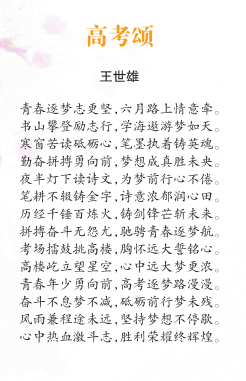 高考颂
王世雄
青春逐梦志更坚,六月路上情意牵。
书山攀登励志行,学海遨游梦如天。
寒窗苦读砥砺心,笔墨执着铸英魂。
勤奋拼搏勇向前,梦想成真胜未央。
夜半灯下读诗文,为梦前行心不倦。
笔耕不辍铸金字,诗意浓郁润心田。
历经千锤百炼火,铸剑锋芒斩未来。
拼搏奋斗无怨尤,驰骋青春逐梦航。
考场擂鼓挑高楼,胸怀远大誓铭心。
高楼屹立望星空,心中远大梦更浓。
青春年少勇向前,高考逐梦路漫漫。
奋斗不息梦不减,砥砺前行梦未残。
风雨兼程途未远,坚持梦想不停歇。
心中热血激斗志,胜利荣耀终辉煌。